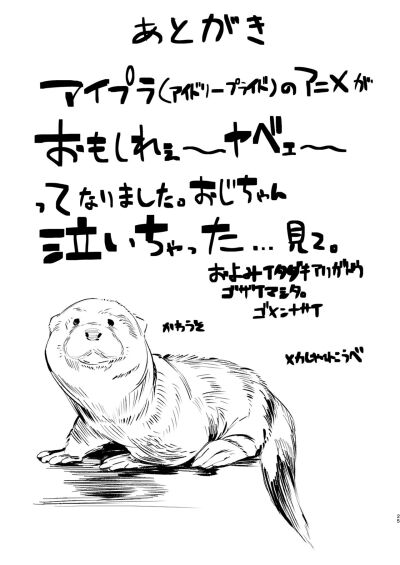 あとがき
アイプラ(アイドリープライド)のアニメが
おもしれぇ〜ヤベェ〜
ってなりました。おじちゃん
泣いちゃった…見て。
およみイタダキアリがとう
ゴザイマシタ。
ゴメンナサイ
かわうそ
25